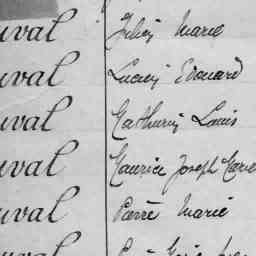 uval Julien Marie
uval Lucien Edouard
uval Mathurin Louis
uval Maurice Joseph Marie
uval Pierre Marie
uval